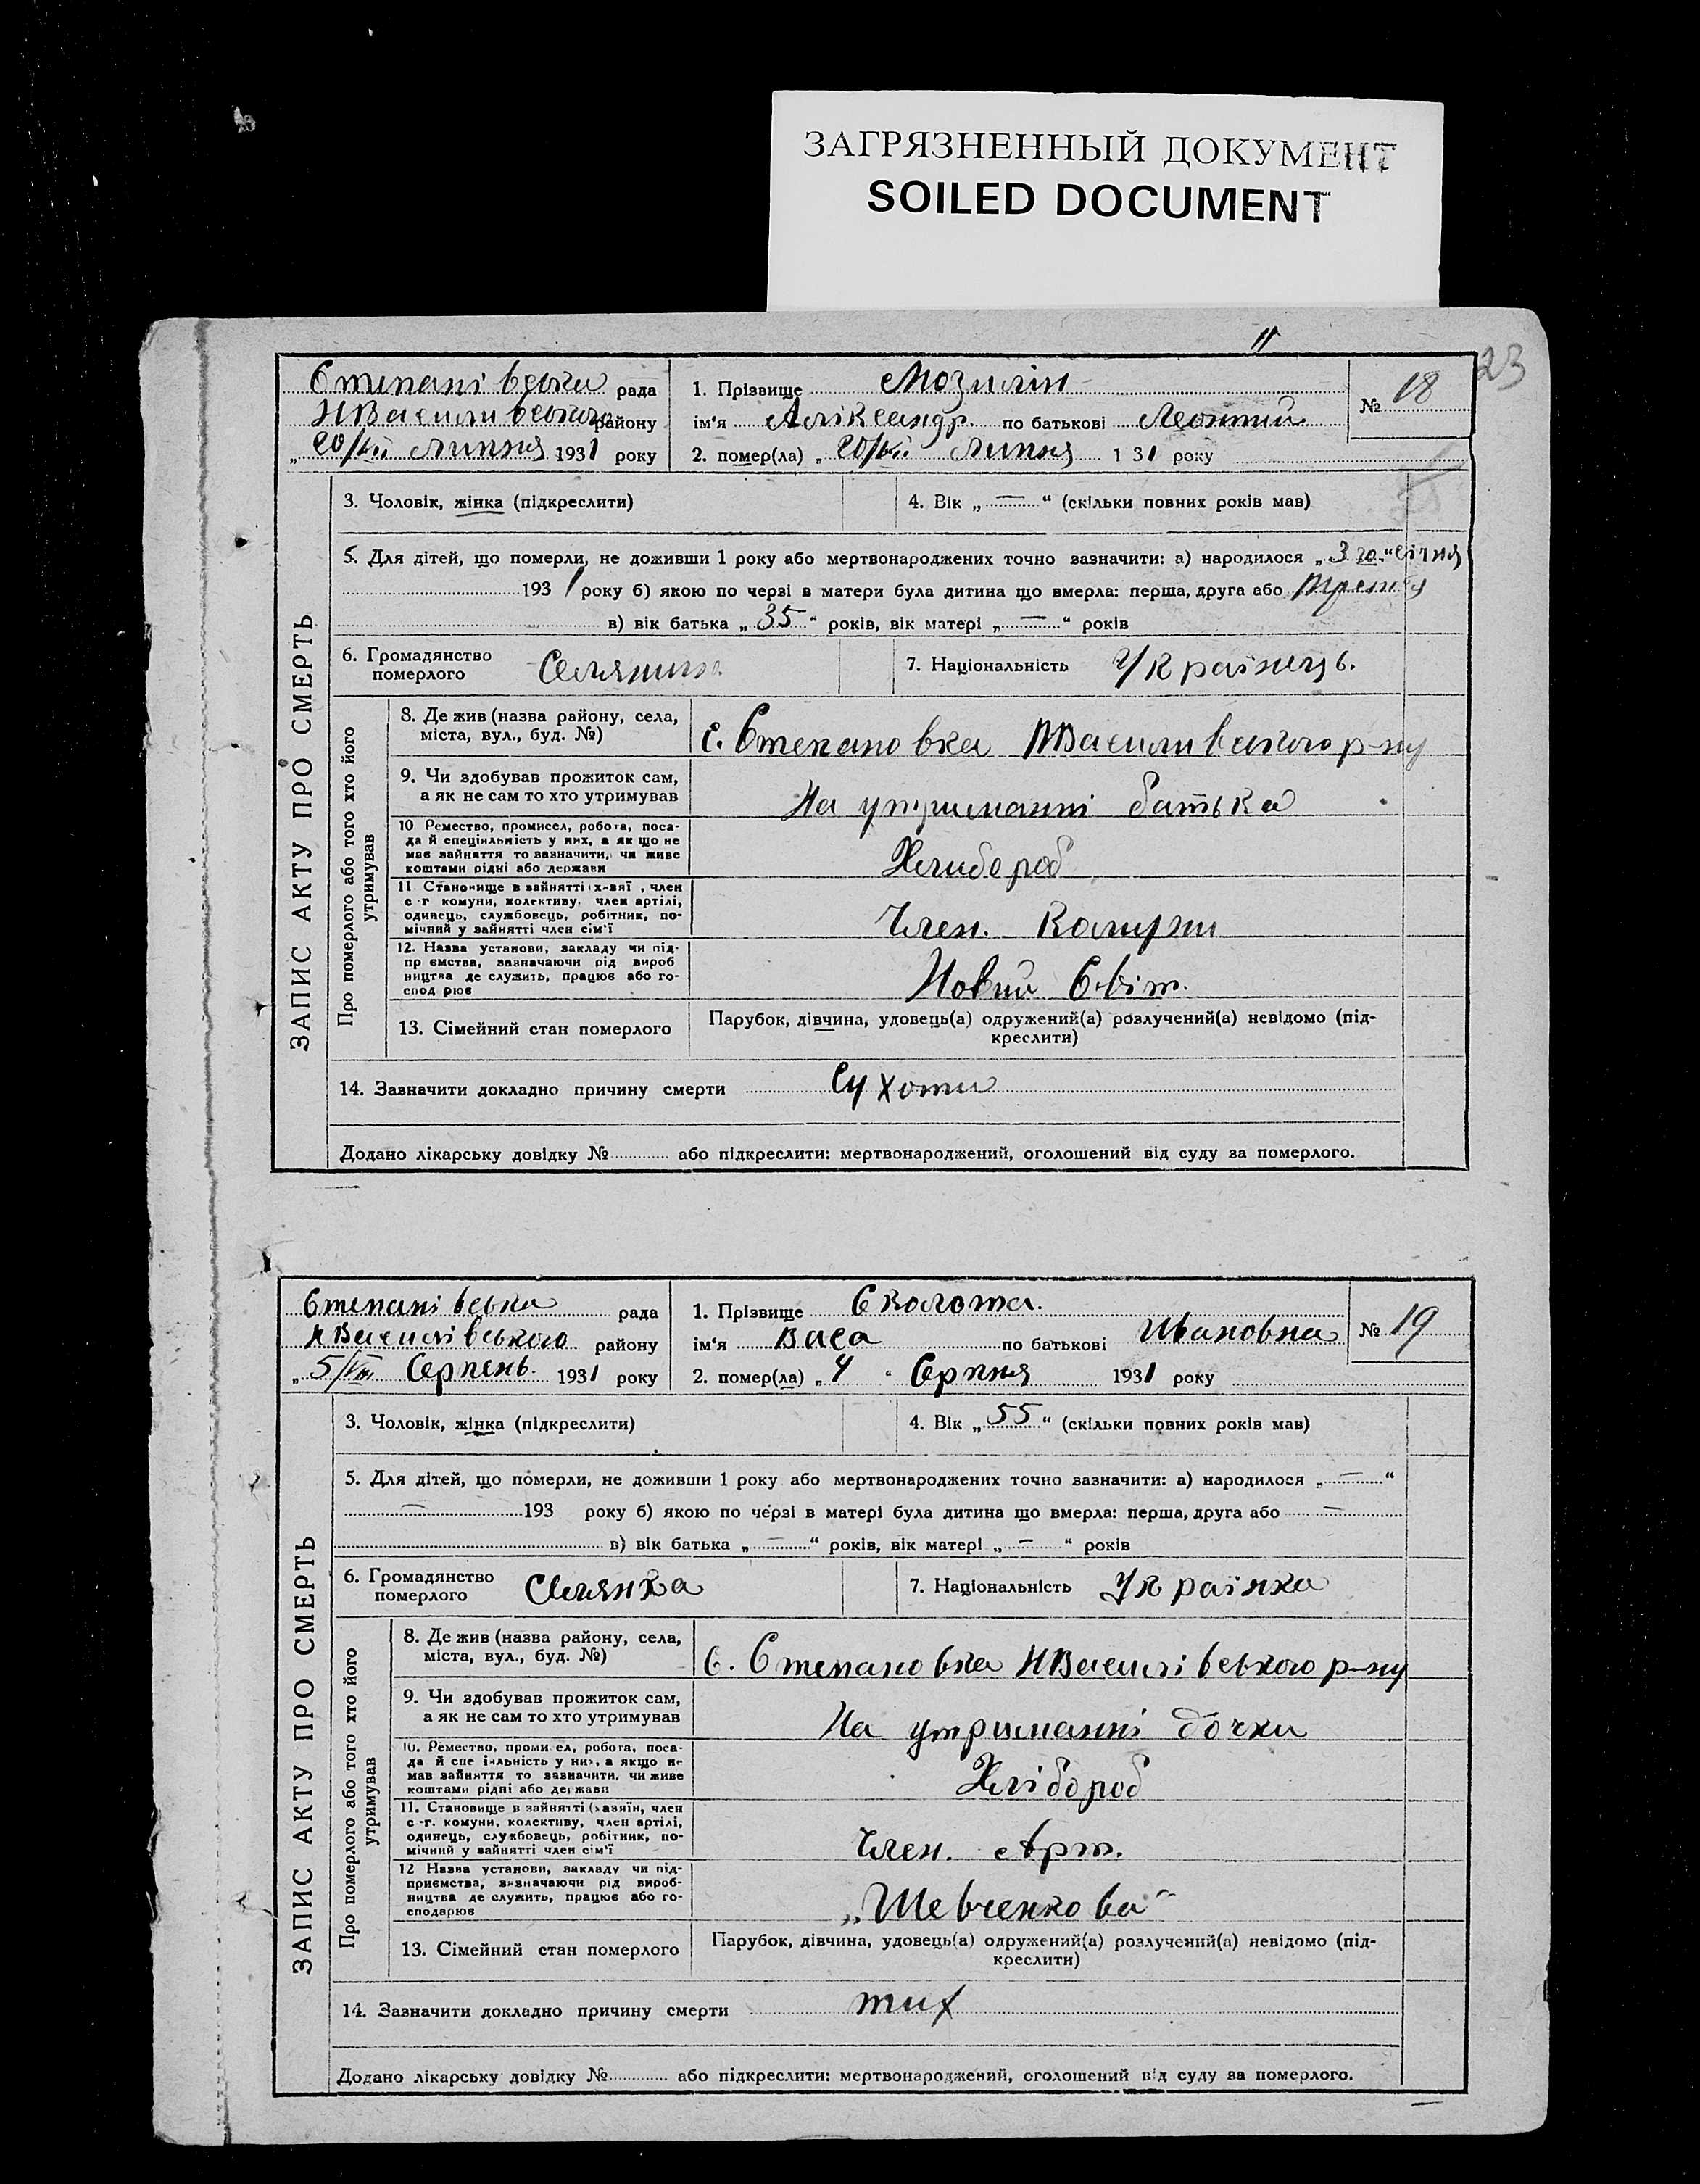 ЗАГРЯЗНЕННЫЙ ДОКУМЕНТ
SOILED DOCUMENT
23
Степанівська рада
НВасилівського району
„20/VII Липня 1931 року
1. Прізвище Мозилін
ім'я Аліксандр по батькові Леонтий
2. помер(ла) „20/VII Липня 1 31 року
№ 18
ЗАПИС АКТУ ПРО СМЕРТЬ
3. Чоловік, жінка (підкреслити)
4. Вік „—“ (скільки повних років мав)
5. Для дітей, що померли, не доживши 1 року або мертвонароджених точно зазначити: а) народилося „3го“ січня
1931 року б) якою по черзі в матери була дитина що вмерла: перша, друга або третя
в) вік батька „35“ років, вік матері „—“ років
6. Громадянство померлого Селянин
7. Національність Українець.
Про померлого або того хто його утримував
8. Де жив (назва району, села,
міста, вул., буд. №)
с. Степановка НВасилівського р-ну
9. Чи здобував прожиток сам,
а як не сам то хто утримував
На утриманні батька
10 Ремество, промисел, робота, поса-
да й спеціяльність у них, а як що не
має зайняття то зазначити, чи живе
коштами рідні або держави
Хлибороб
11 Становище в зайнятті (х-зяї , член
с -г комуни, колективу, член артілі,
одинець, службовець, робітник, по-
мічний у зайнятті член сім'ї
Член. Комуни
12. Назва установи, закладу чи під-
пр ємства, зазначаючи рід вироб
ництва де служить, працює або го-
спод рює
Новий Світ.
13. Сімейний стан померлого
Парубок, дівчина, удовець(а) одружений(а) розлучений(а) невідомо (під-
креслити)
14. Зазначити докладно причину смерти Сухоти
Додано лікарську довідку № або підкреслити: мертвонароджений, оголошений від суду за померлого.
Степанівська рада
НВасилівського району
„5/VIII Серпень. 1931 року
1. Прізвище Сколота.
ім'я Васа по батькові Ивановна
2. помер(ла) „4 “ Серпня 1931 року
№ 19
ЗАПИС АКТУ ПРО СМЕРТЬ
3. Чоловік, жінка (підкреслити)
4. Вік „55“ (скільки повних років мав)
5. Для дітей, що померли, не доживши 1 року або мертвонароджених точно зазначити: а) народилося „—“
— 193 року б) якою по черзі в матері була дитина що вмерла: перша, друга або —
в) вік батька „—“ років, вік матері „—“ років
6. Громадянство померлого Селянка
7. Національність Українка
Про померлого або того хто його утримував
8. Де жив (назва району, села,
міста, вул., буд. №)
С. Степановка НВасилівського р-ну
9. Чи здобував прожиток сам,
а як не сам то хто утримував
На утриманні дочки
10. Ремество, проми ел, робота, поса-
да й спе іяльність у них, а якщо не
мав зайняття то зазначити, чи живе
коштами рідні або держави
Хлібороб
11. Становище в зайнятті (хазяїн, член
с -г. комуни, колективу, член артілі,
одинець, службовець, робітник, по-
мічний у зайнятті член сім'ї
Член. Арт.
12 Назва установи, закладу чи під-
приємства, зазначаючи рід вироб-
ництва де служить, працює або го-
сподарює
„Шевченкова“
13. Сімейний стан померлого
Парубок, дівчина, удовець(а) одружений(а) розлучений(а) невідомо (під-
креслити)
14. Зазначити докладно причину смерти тиф
Додано лікарську довідку № або підкреслити: мертвонароджений, оголошений від суду за померлого.